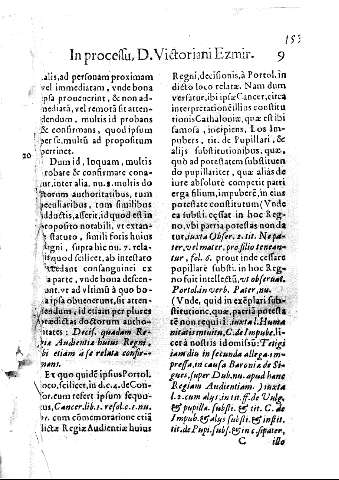 153
In processu, D. Victoriani Ezmir. 9
alis, ad personam proximam
vel immediatam, vnde bona
ipsa prouenerint, & non ad
mediatã, vel remotã sit atten
dendum, multis id probans
& confirmans, quod ipsum
per se multũ ad propositum
pertinet.
20 Dum id, loquam, multis
robare & confirmare cona
tur, inter alia. nu. 8. multis do
ctorum authoritatibus, tum
peculiaribus, tum similibus
adductis, asserit, id quod est in
proposito notabili, vt extan
statuto, simili foris huius
regni, supra hic nu. 7. rela
quod scilicet, ab intestato
cedant consanguinei ex
parte, vnde bona descen-
unt. vt ad vltimũ à quo bo-
a ipsa obuenerunt, sit atten-
dendum, id etiam per plures
prædictas doctorum autho-
itates: Decis. quadam Re-
gia Audientia huius Regni,
ibi etiam à se relata confir-
mans.
Et quo quidẽ ipsus Portol.
loco, scilicet, in d. c. 4. de Con-
for. cum refert ipsum sequu-
tus, Cancer. lib. 1. resol. c. 1. nu.
cum comemoratione etiã
dictæ Regiæ Audientiæ huius
Regni, decisionis, à Portol. in
dicto loco relatæ. Nam dum
versatur, ibi ipse Cancer, circa
interpretationẽ illius constitu
tionis Cathaloniæ, quæ est ibi
famosa, incipiens, Los Im-
pubers, tit. de Pupillari, &
alijs substitutionibus, quæ,
quò ad potestatem substituen
di pupillariter, quæ aliàs de
iure absolutè competit patri
erga filium, impuberẽ, in eius
potestate constitutum (Vnde
ea substi. cessat in hoc Reg-
no, vbi patria potestas non da
tur, iuxta Obser. 2. tit. Ne pa-
ter, vel mater, pro filio tenean-
tur, fol. 6. prout inde cessare
pupillarẽ substi. in hoc Reg-
no fuit intellectũ, vt obseruat.
Portol. in verb. Pater, nu.
(Vnde, quid in exẽplari subst
titutione, quæ, patriã potesta
tẽ non requirit, iuxta l. Huma
nitatis intuitu, C. de Impube, li-
cet à nostris id omissũ: Tetigi
iam diu in secunda allega. im-
pressa, in causa Baronia de Si-
gues, super Dub. nu. apud hanc
Regiam Audientiam.) iuxta
l. 2. cum alys, in tit. ff. de Vulg.
& pupilla. substi. & tit. C. de
Impub. & alys substi. & in tit.
tit. de Pupi. substi. & in c. si pater,
C illo